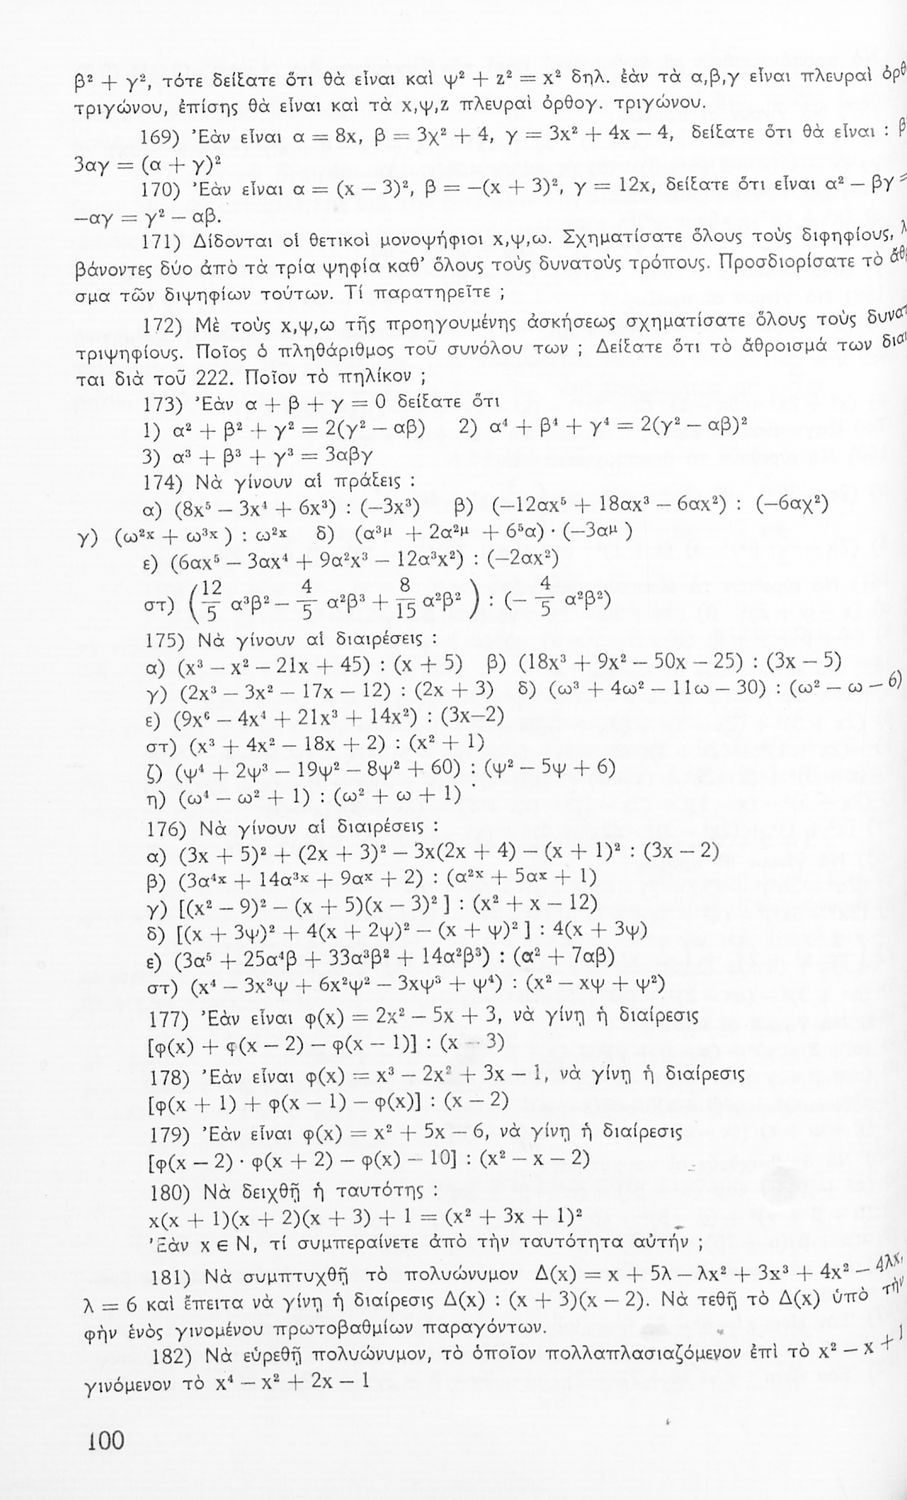 β² + γ², τότε δείξατε ὅτι θὰ εἶναι καὶ ψ² + z² = x² δηλ. ἐὰν τὰ α,β,γ εἶναι πλευραὶ ὀρθ
τριγώνου, ἐπίσης θὰ εἶναι καὶ τὰ x,ψ,z πλευραὶ ὀρθογ. τριγώνου.
169) Ἐὰν εἶναι α = 8x, β = 3χ² + 4, γ = 3x² + 4x — 4, δείξατε ὅτι θὰ εἶναι : β
3αγ = (α + γ)²
170) Ἐὰν εἶναι α = (x — 3)², β = —(x + 3)², γ = 12x, δείξατε ὅτι εἶναι α² — βγ =
—αγ = γ² — αβ.
171) Δίδονται οἱ θετικοὶ μονοψήφιοι x,ψ,ω. Σχηματίσατε ὅλους τοὺς διφηφίους, λ
βάνοντες δύο ἀπὸ τὰ τρία ψηφία καθ' ὅλους τοὺς δυνατοὺς τρόπους. Προσδιορίσατε τὸ ἄθ
σμα τῶν διψηφίων τούτων. Τί παρατηρεῖτε ;
172) Μὲ τοὺς x,ψ,ω τῆς προηγουμένης ἀσκήσεως σχηματίσατε ὅλους τοὺς δυνατ
τριψηφίους. Ποῖος ὁ πληθάριθμος τοῦ συνόλου των ; Δείξατε ὅτι τὸ ἄθροισμά των διαι
ται διὰ τοῦ 222. Ποῖον τὸ πηλίκον ;
173) Ἐὰν α + β + γ = 0 δείξατε ὅτι
1) α² + β² + γ² = 2(γ² — αβ) 2) α⁴ + β⁴ + γ⁴ = 2(γ² — αβ)²
3) α³ + β³ + γ³ = 3αβγ
174) Νὰ γίνουν αἱ πράξεις :
α) (8x⁵ — 3x⁴ + 6x³) : (—3x³) β) (—12αx⁵ + 18αx³ — 6αx²) : (—6αχ²)
γ) (ω²ˣ + ω³ˣ ) : ω²ˣ δ) (α³ᵘ + 2α²ᵘ + 6⁵α) · (—3αᵘ )
ε) (6αx⁵ — 3αx⁴ + 9α²x³ — 12α³x²) : (—2αx²)
στ) (12/5 α³β² — 4/5 α²β³ + 8/15 α²β² ) : (— 4/5 α²β²)
175) Νὰ γίνουν αἱ διαιρέσεις :
α) (x³ — x² — 21x + 45) : (x + 5) β) (18x³ + 9x² — 50x — 25) : (3x — 5)
γ) (2x³ — 3x² — 17x — 12) : (2x + 3) δ) (ω³ + 4ω² — 11ω — 30) : (ω² — ω — 6)
ε) (9x⁶ — 4x⁴ + 21x³ + 14x²) : (3x—2)
στ) (x³ + 4x² — 18x + 2) : (x² + 1)
ζ) (ψ⁴ + 2ψ³ — 19ψ² — 8ψ² + 60) : (ψ² — 5ψ + 6)
η) (ω⁴ — ω² + 1) : (ω² + ω + 1)
176) Νὰ γίνουν αἱ διαιρέσεις :
α) (3x + 5)² + (2x + 3)² — 3x(2x + 4) — (x + 1)² : (3x — 2)
β) (3α⁴ˣ + 14α³ˣ + 9αˣ + 2) : (α²ˣ + 5αˣ + 1)
γ) [(x² — 9)² — (x + 5)(x — 3)² ] : (x² + x — 12)
δ) [(x + 3ψ)² + 4(x + 2ψ)² — (x + ψ)² ] : 4(x + 3ψ)
ε) (3α⁵ + 25α⁴β + 33α³β² + 14α²β³) : (α² + 7αβ)
στ) (x⁴ — 3x³ψ + 6x²ψ² — 3xψ³ + ψ⁴) : (x² — xψ + ψ²)
177) Ἐὰν εἶναι φ(x) = 2x² — 5x + 3, νὰ γίνῃ ἡ διαίρεσις
[φ(x) + φ(x — 2) — φ(x — 1)] : (x — 3)
178) Ἐὰν εἶναι φ(x) = x³ — 2x² + 3x — 1, νὰ γίνῃ ἡ διαίρεσις
[φ(x + 1) + φ(x — 1) — φ(x)] : (x — 2)
179) Ἐὰν εἶναι φ(x) = x² + 5x — 6, νὰ γίνῃ ἡ διαίρεσις
[φ(x — 2) · φ(x + 2) — φ(x) — 10] : (x² — x — 2)
180) Νὰ δειχθῇ ἡ ταυτότης :
x(x + 1)(x + 2)(x + 3) + 1 = (x² + 3x + 1)²
Ἐὰν x ∈ N, τί συμπεραίνετε ἀπὸ τὴν ταυτότητα αὐτήν ;
181) Νὰ συμπτυχθῇ τὸ πολυώνυμον Δ(x) = x + 5λ — λx² + 3x³ + 4x² — 4λx,
λ = 6 καὶ ἔπειτα νὰ γίνῃ ἡ διαίρεσις Δ(x) : (x + 3)(x — 2). Νὰ τεθῇ τὸ Δ(x) ὑπὸ τὴν
φὴν ἑνὸς γινομένου πρωτοβαθμίων παραγόντων.
182) Νὰ εὑρεθῇ πολυώνυμον, τὸ ὁποῖον πολλαπλασιαζόμενον ἐπὶ τὸ x² — x + 1
γινόμενον τὸ x⁴ — x² + 2x — 1
100